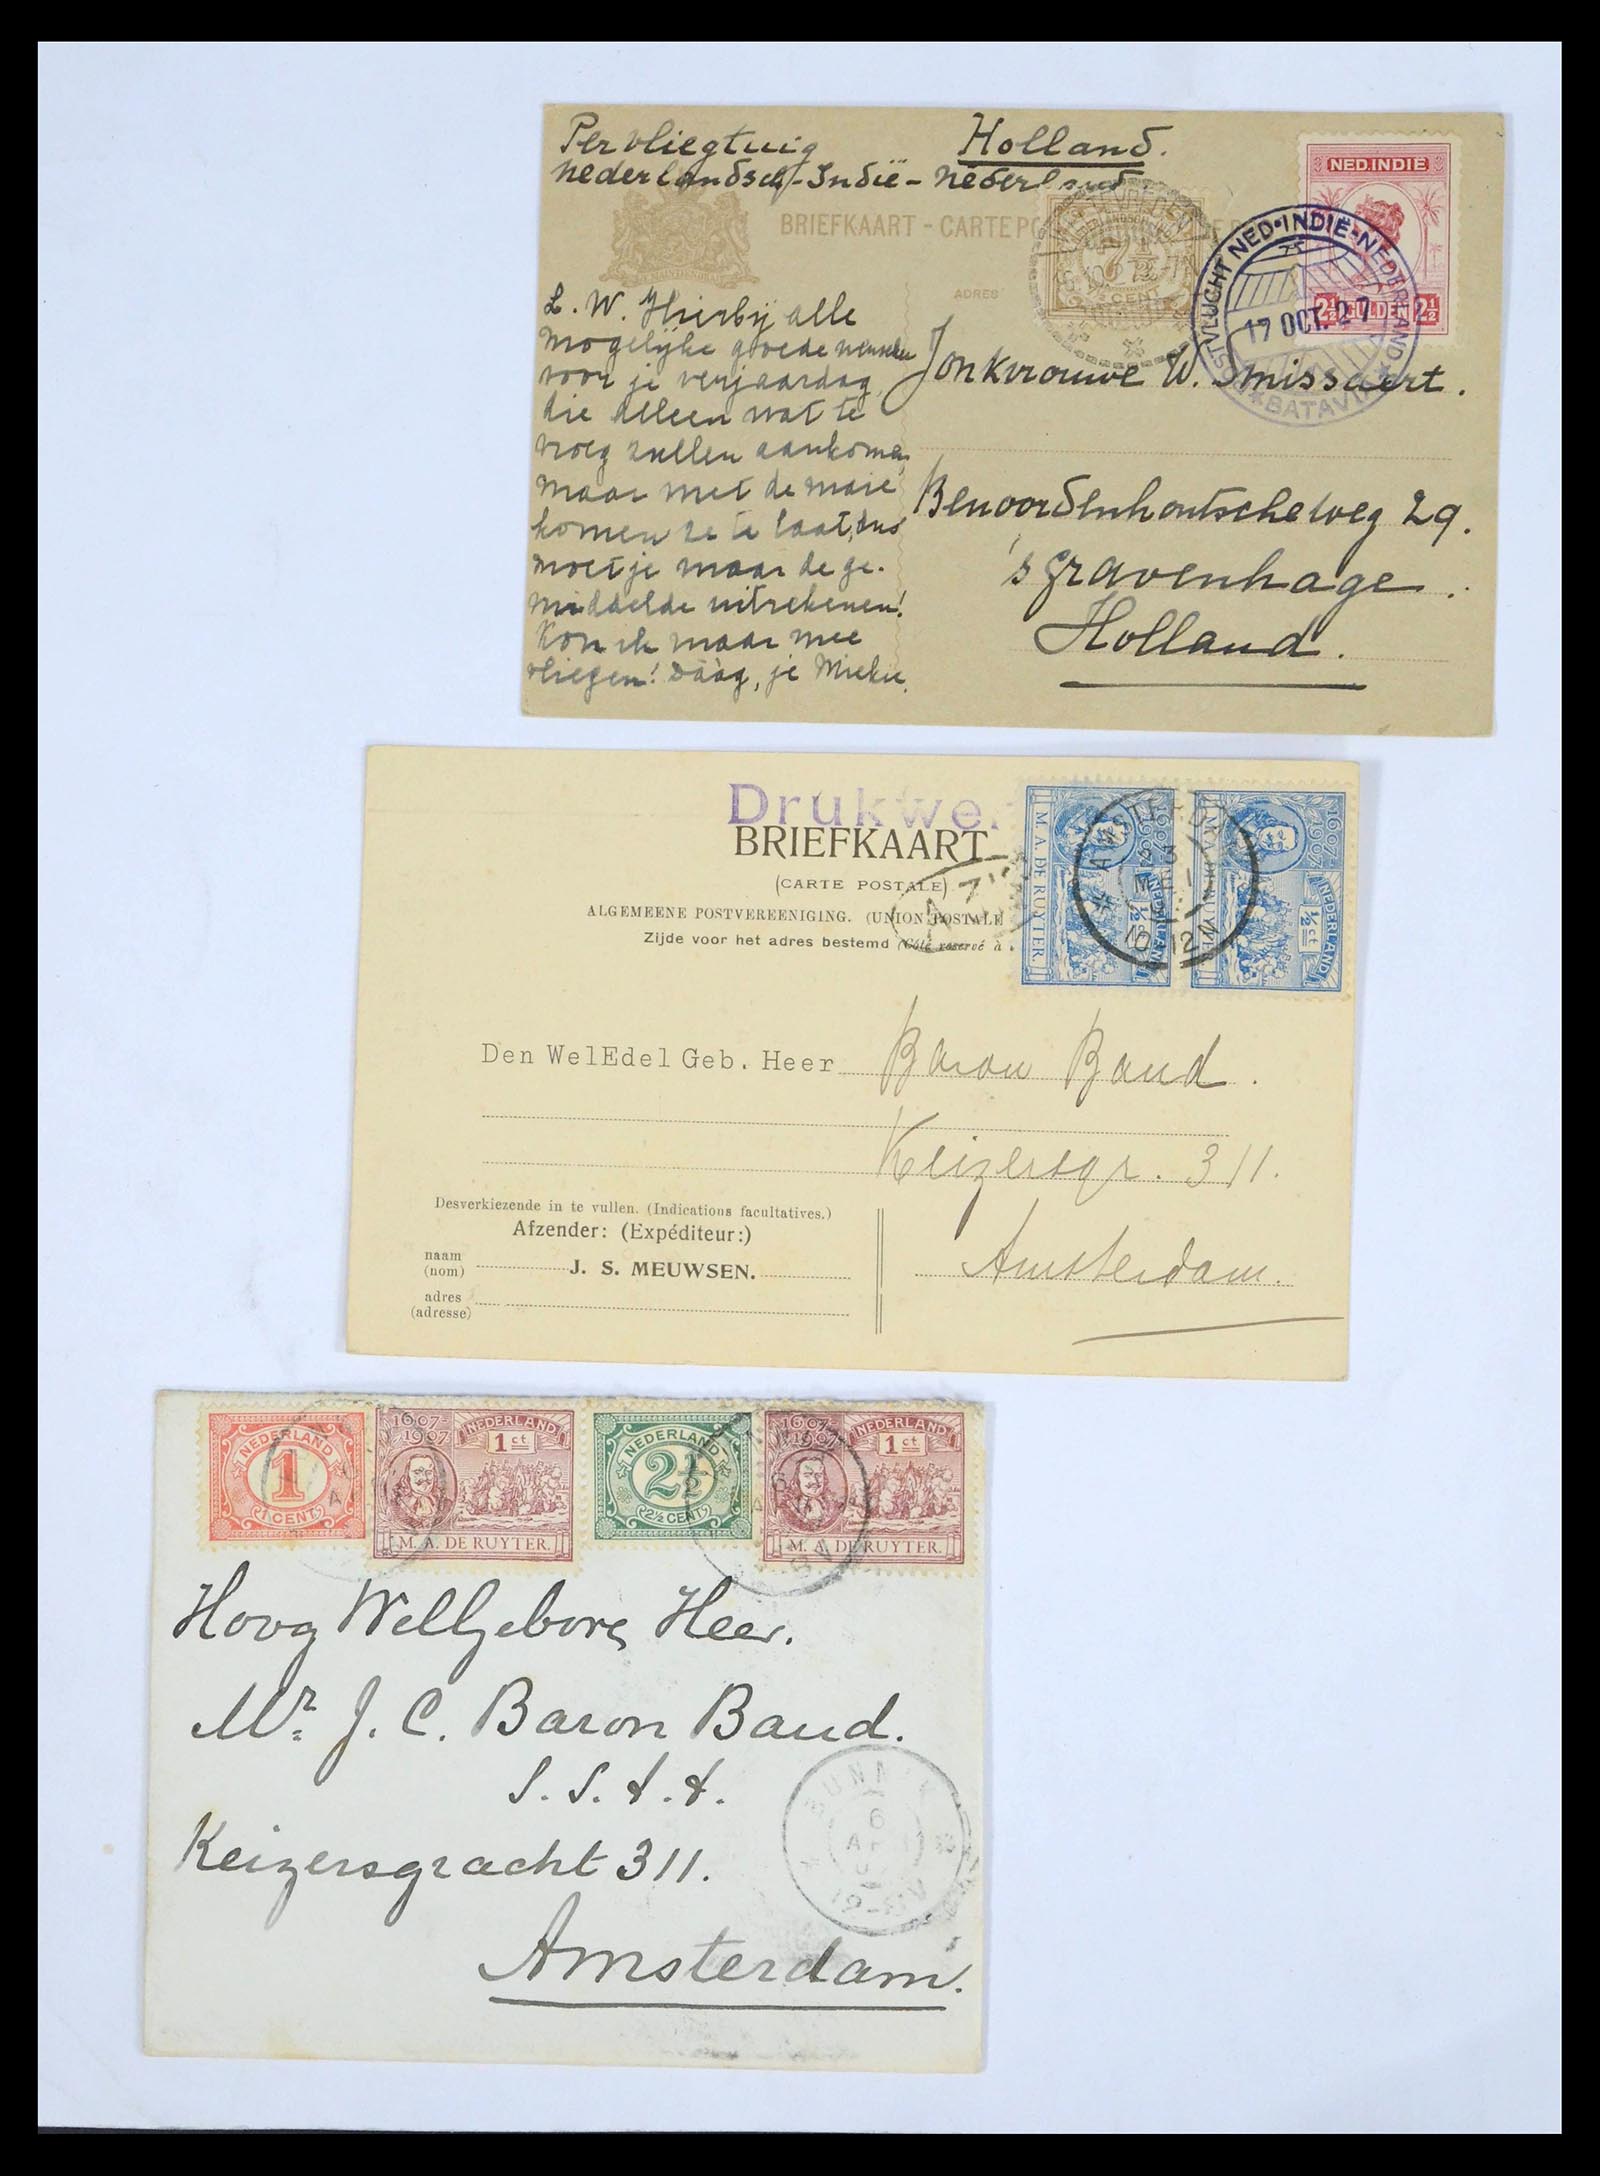 Per vliegtuig Holland.
Nederlandsch-Indië - Nederland
BRIEFKAART - CARTE PO
NED. INDIE
2½ GULDEN 2½
POSTVLUCHT NED-INDIË-NEDERLAND
17 OCT. 27
BATAVIA
7½
CENT
ADRES
L. W. Hierbij alle
mogelijke goede wenschen
voor je verjaardag,
die alleen wat te
vroeg zullen aankomen,
maar met de maie
komen ze te laat, dus
moet je maar de ge-
middelde uitrekenen!
Kon ik maar mee
vliegen! Dààg, je Mieke.
Jonkvrouwe W. Smissaert.
Benoordenhoutscheweg 29.
's Gravenhage.
Holland.
Drukwer
BRIEFKAART
(CARTE POSTALE)
ALGEMEENE POSTVEREENIGING. (UNION POSTALE
Zijde voor het adres bestemd (Côté réservé à
1607 1907
NEDERLAND
½ ct
M. A. DE RUYTER.
1607 1907
NEDERLAND
½ ct
AMSTERD
3 MEI
10-12V
Den WelEdel Geb. Heer Baron Baud.
Keizersgr. 311.
Amsterdam.
Desverkiezende in te vullen. (Indications facultatives.)
Afzender: (Expéditeur:)
naam
(nom)
J. S. MEUWSEN.
adres
(adresse)
NEDERLAND
1
1 CENT
1607-1907
NEDERLAND
1 ct
M. A. DE RUYTER.
NEDERLAND
2½
2½ CENT
1607-1907
NEDERLAND
1 ct
M. A. DE RUYTER.
Hoog WelGeboren Heer.
Mr. J. C. Baron Baud.
S. S. t. t.
Keizersgracht 311.
Amsterdam.
BUNNIK
6